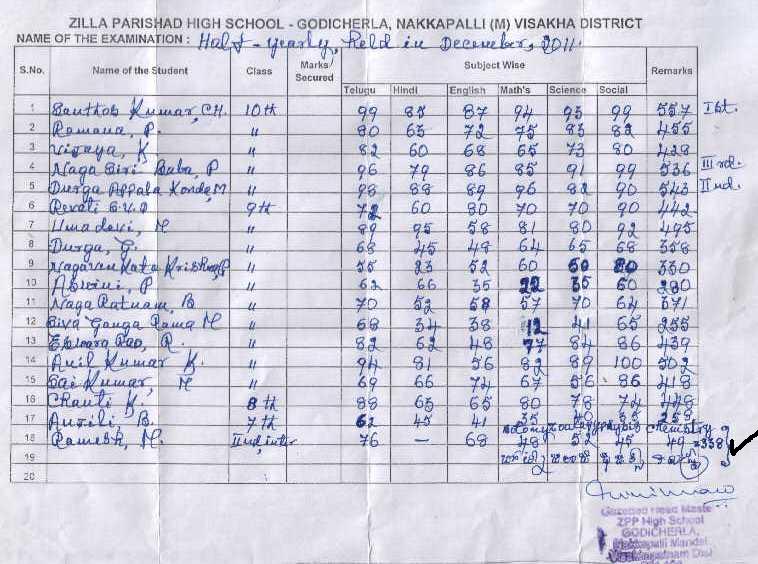 ZILLA PARISHAD HIGH SCHOOL - GODICHERLA, NAKKAPALLI (M) VISAKHA DISTRICT
NAME OF THE EXAMINATION : Half-yearly, Held in December, 2011.
S.No. Name of the Student Class Marks Secured Subject Wise Remarks
Telugu Hindi English Math's Science Social
1 Santhosh Kumar, CH. 10th 99 85 87 94 93 99 557 Ist.
2 Ramana, P. " 80 63 72 75 83 82 455
3 Vijaya, K " 82 60 68 65 73 80 428
4 Naga Siri Baba, P " 96 79 86 85 91 99 536 IIIrd.
5 Durga Appala Konda, M " 98 88 89 96 82 90 543 IInd.
6 Revati 9th 72 60 80 70 70 90 442
7 Umadevi, M " 89 95 58 81 80 92 495
8 Durga, G. " 68 45 48 64 65 68 358
9 Nagavenkata Krishna, P " 55 23 52 60 60 80 330
10 Aswini, P " 62 66 35 22 35 60 280
11 Naga Ratnam, B " 70 52 58 57 70 64 371
12 Siva Ganga Rama M " 68 34 38 12 41 65 255
13 Eswara Rao, R. " 82 62 48 77 84 86 439
14 Anil Kumar K. " 94 81 56 82 89 100 502
15 Sai Kumar, M " 69 66 74 67 56 86 418
16 Chanti K. 8th 88 65 65 80 78 72 448
17 B. 7th 62 45 41 35 40 35 258
zoology physics chemistry
18 Ramesh, M. IInd inter 76 - 68 48 52 45 49 =338
19
20
Gazetted Head Master
ZPP High School
GODICHERLA,
Nakkapalli Mandal
Visakhapatnam Dist